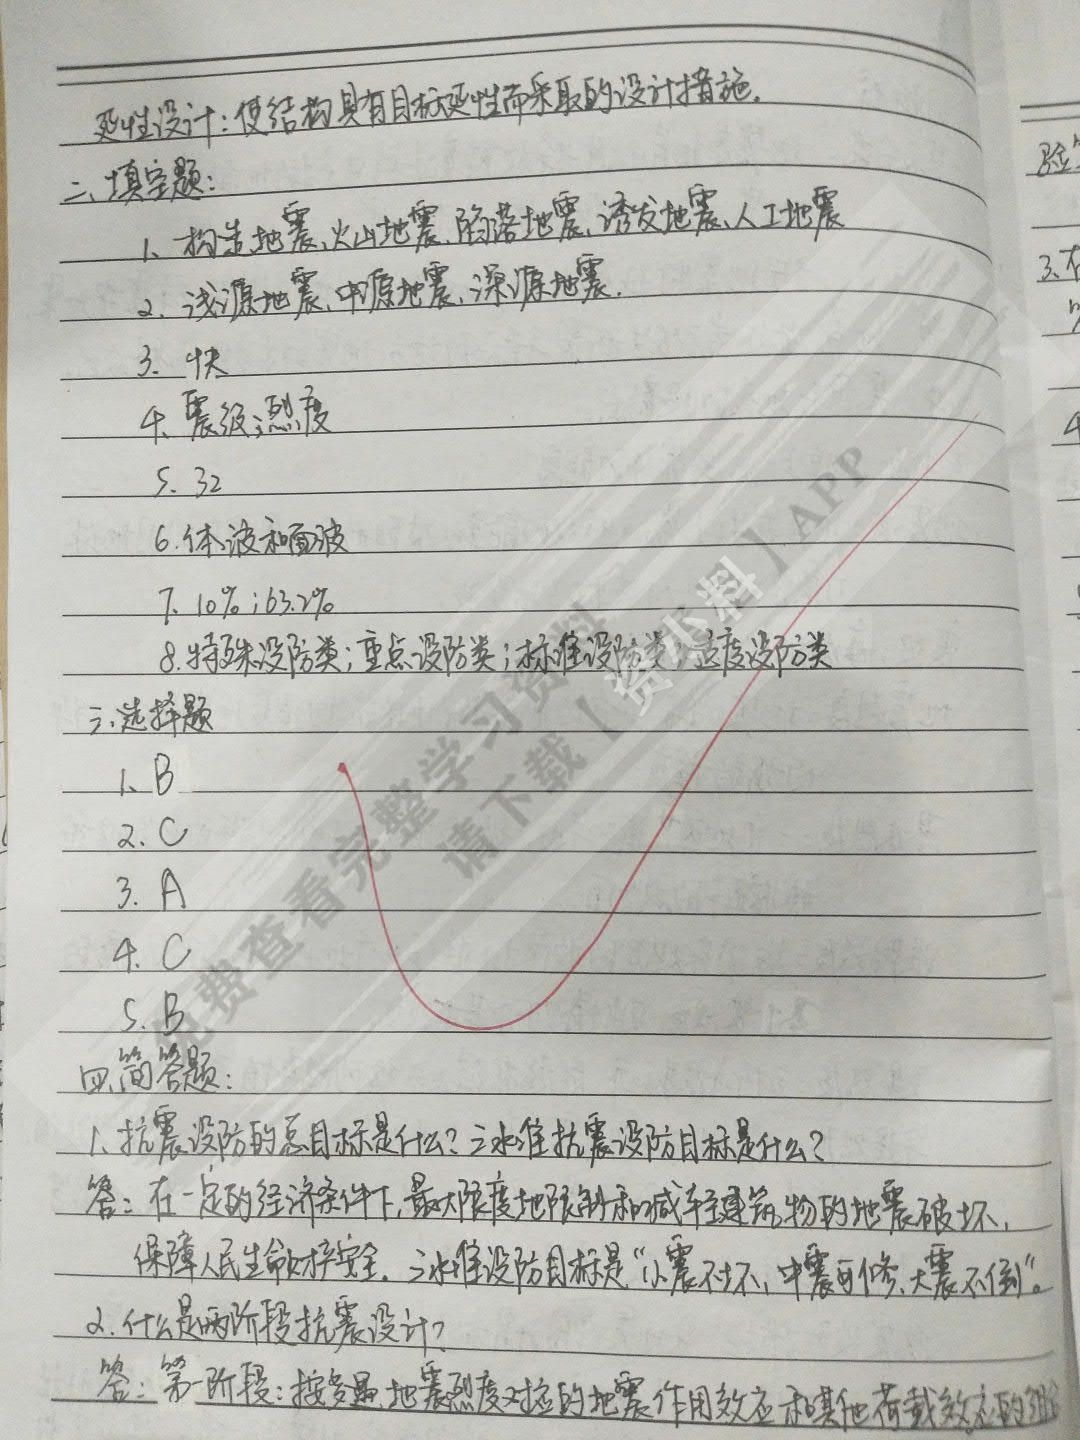 延性设计:使结构具有目标延性而采取的设计措施.
二、填空题:
1、构造地震、火山地震、陷落地震、诱发地震、人工地震
2、浅源地震、中源地震、深源地震.
3、快
4、震级;烈度
5、32
6.体波和面波
7、10%;63.2%
8.特殊设防类;重点设防类;标准设防类;适度设防类
三、选择题
1、B
2、C
3、A
4、C
5、B
四、简答题:
1、抗震设防的总目标是什么?三水准抗震设防目标是什么?
答:在一定的经济条件下,最大限度地限制和减轻建筑物的地震破坏,
保障人民生命财产安全.三水准设防目标是“小震不坏,中震可修,大震不倒”。
2.什么是两阶段抗震设计?
答:第一阶段:按多遇地震烈度对应的地震作用效应和其他荷载效应的组
3.在
免费查看完整学习资料
请下载【资小料】APP